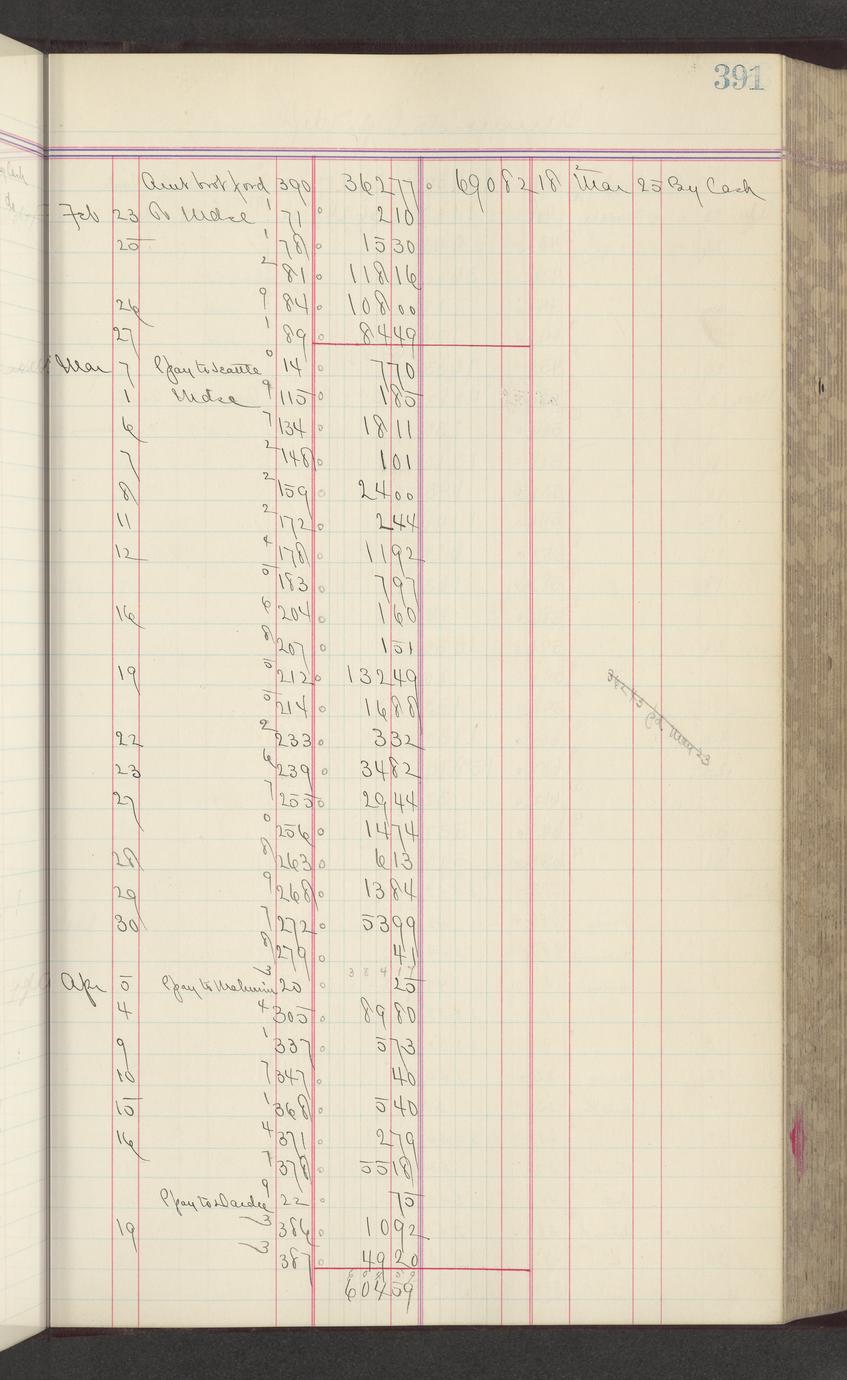 391
Amt brot ford 390 362 77 690 82 18 Mar 25 By Cash
Feb 23 To Mdse 1 71 2 10
25 1 78 15 30
2 81 118 16
26 9 84 108 00
27 1 89 84 49
Mar 7 Ppay to Seattle 0 14 7 70
1 Mdse 9 115 1 85
6 7 134 18 11
7 2 148 1 01
8 2 159 24 00
11 2 172 2 44
12 4 178 11 92
5 183 7 97
16 6 204 1 60
8 207 1 51
19 5 212 132 49
5 214 16 88
22 2 233 3 32
23 6 239 34 82
27 7 255 29 44
0 256 14 74
28 8 263 6 13
29 9 268 13 84
30 7 272 53 99
8 279 41
384 17
Apr 5 Ppay to 3 20 25
4 4 305 89 80
9 1 337 5 73
10 7 347 40
15 1 368 5 40
16 4 371 2 79
7 378 55 18
Ppay to 9 22 75
19 3 386 10 92
3 387 49 20
604 59